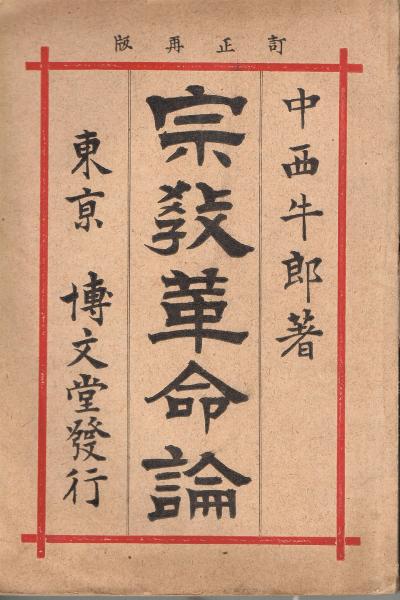 訂正再版
中西牛郎著
宗敎革命論
東京 博文堂發行